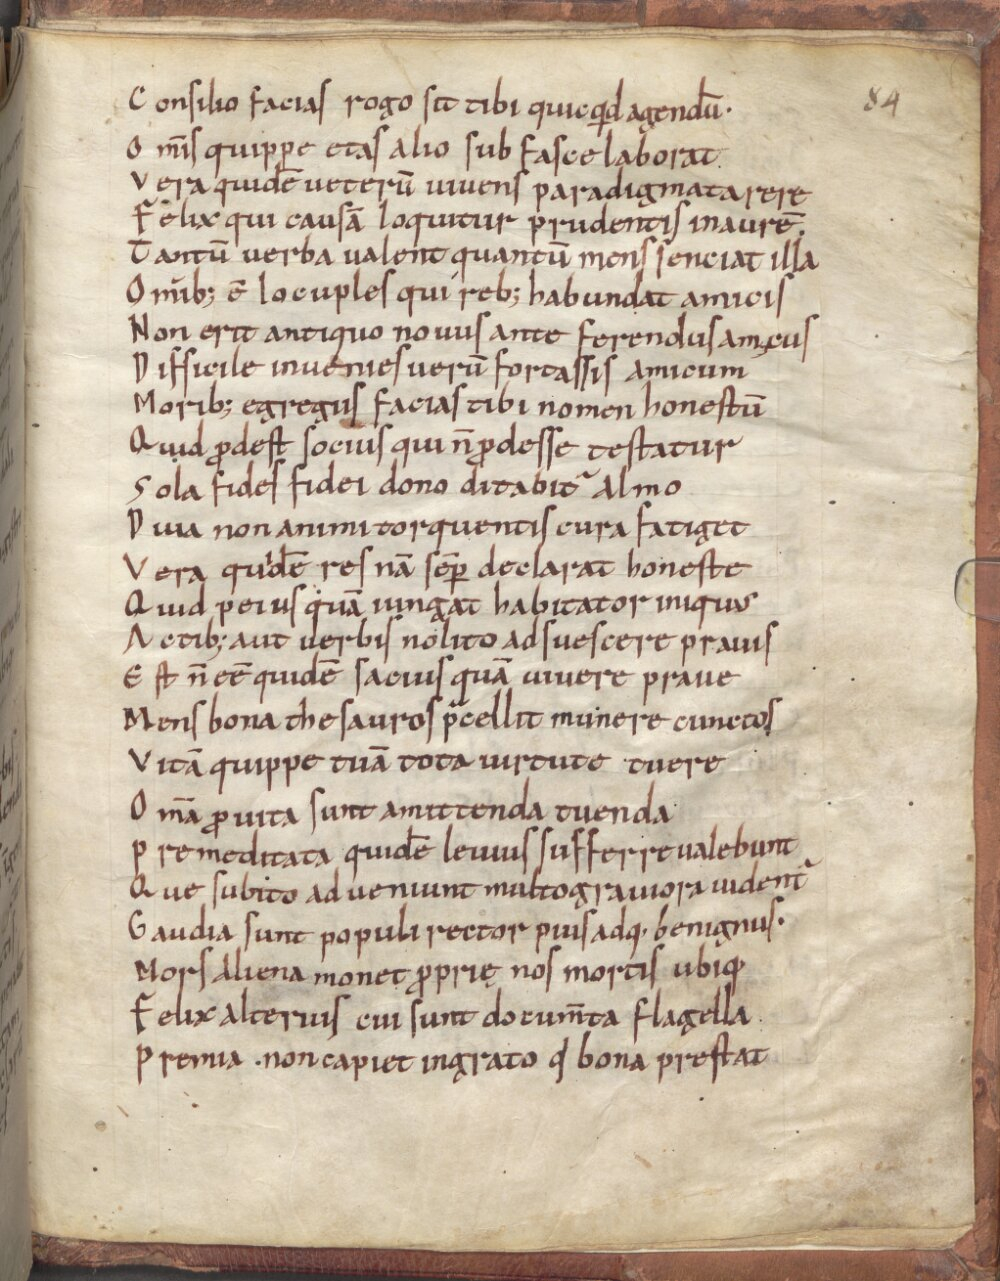 84
Consilio facias rogo sit tibi quicq̇d agendū·
Om̄s quippe etas alio sub fasce laborat
Vera quidē ueterū uiuens paradigmata rere
Felix qui causā loquitur prudentis in aurē.
Tantū uerba ualent quantū mens senciat illa
Omīb; ē locuples qui reb; habundat amicis
Non erit antiquo nouus ante ferendus amicus
Difficile inuenies uerū fortassis amicum
Morib; egregiis facias tibi nomen honestū
Quid ꝓdest socius qui n̄ ꝓdesse testatur
Sola fides fidei dono ditabit᷑ almo
Diuia non animi torquentis cura fatiget
Vera quidē res nā sēꝑ declarat honeste
Quid peius quā iungat habitator iniquos
Actib; aut uerbis nolito adsuescere prauis
Est n̄ eē quidē sacius quā uiuere praue
Mens bona thesauros p̄cellit munere cunctos
Vitā quippe tuā tota uirtute tuere
Omā ꝓ uita sunt amittenda tuenda
Premeditata quidē leuius sufferre ualebunt
Que subito adueniunt multo grauiora uident᷑
Gaudia sunt populi rector pius adq; benignus·
Mors aliena monet ꝓprię nos mortis ubiq;
Felix alterius cui sunt documn̄ta flagella
Premia non capiet ingrato qđ bona prestat